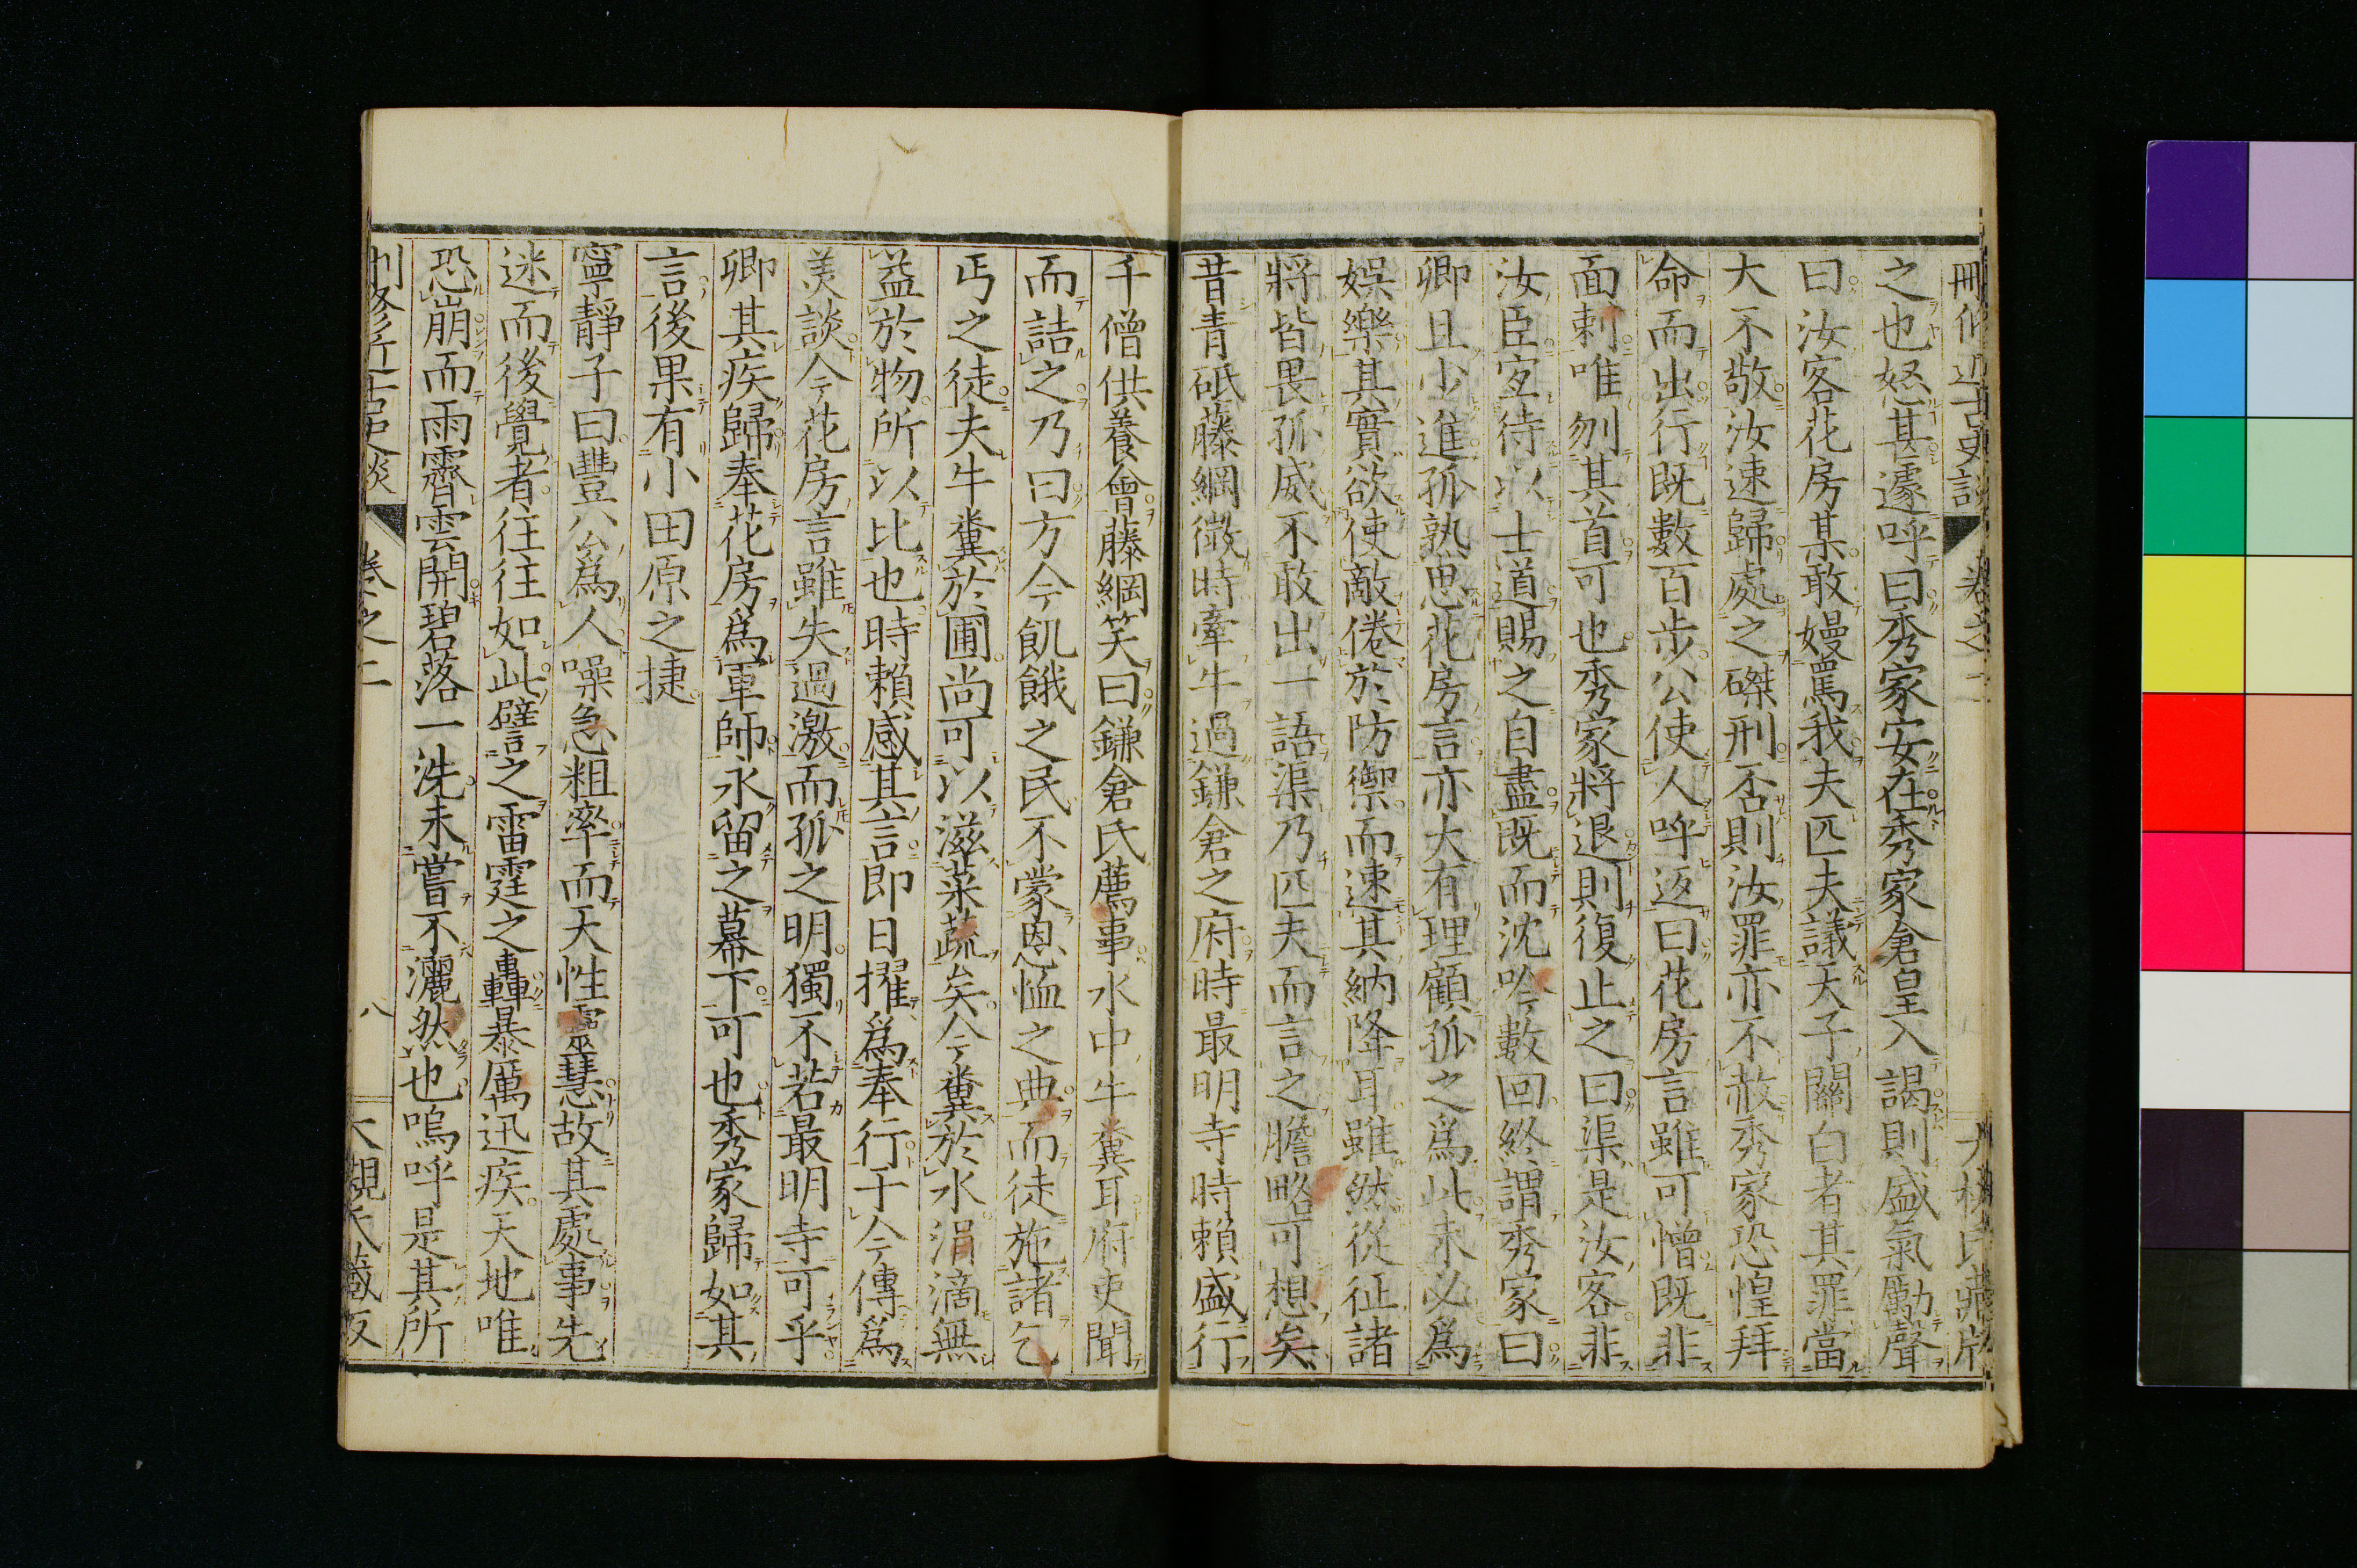 刪修近古史談 卷之二 大槻氏藏版
之也怒甚遽呼曰秀家安在秀家倉皇入謁則盛氣勵聲
曰汝客花房某敢嫚罵我夫匹夫議天子關白者其罪當
大不敬汝速歸處之磔刑否則汝罪亦不赦秀家恐惶拜
命而出行既數百步公使人呼返曰花房言雖可憎既非
面刺唯刎其首可也秀家將退則復止之曰渠是汝客非
汝臣宜待以士道賜之自盡既而沈吟數回終謂秀家曰
卿且少進孤熟思花房言亦大有理顧孤之爲此未必爲
娛樂其實欲使敵倦於防禦而速其納降耳雖然從征諸
將皆畏孤威不敢出一語渠乃匹夫而言之膽略可想矣
昔青砥藤綱微時牽牛過鎌倉之府時最明寺時賴盛行
千僧供養會藤綱笑曰鎌倉氏薦事水中牛糞耳府吏聞
而詰之乃曰方今飢餓之民不蒙恩恤之典而徒施諸乞
丐之徒夫牛糞於圃尚可以滋菜蔬矣今糞於水涓滴無
益於物所以比也時賴感其言即日擢爲奉行于今傳爲
美談今花房言雖失過激而孤之明獨不若最明寺可乎
卿其疾歸奉花房爲軍師永留之幕下可也秀家歸如其
言後果有小田原之捷
寧靜子曰豐公爲人噪急粗率而天性靈慧故其處事先
迷而後覺者往往如此譬之雷霆之轟暴厲迅疾天地唯
恐崩而雨霽雲開碧落一洗未嘗不灑然也嗚呼是其所
刪修近古史談 卷之二 八 大槻氏藏版